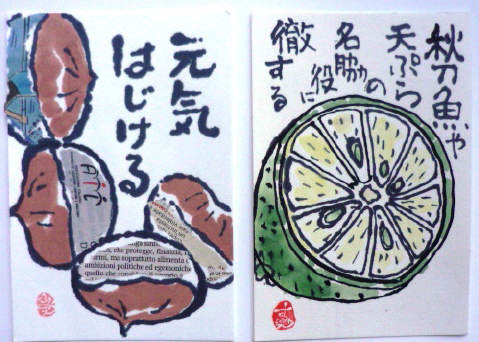 元気
はじける
秋刀魚や
天ぷら
の
名脇役に
徹する
AiC
che protegge, finanzia,
armi, ma soprattutto alimenta
ambizioni politiche ed egemoniche
quello che